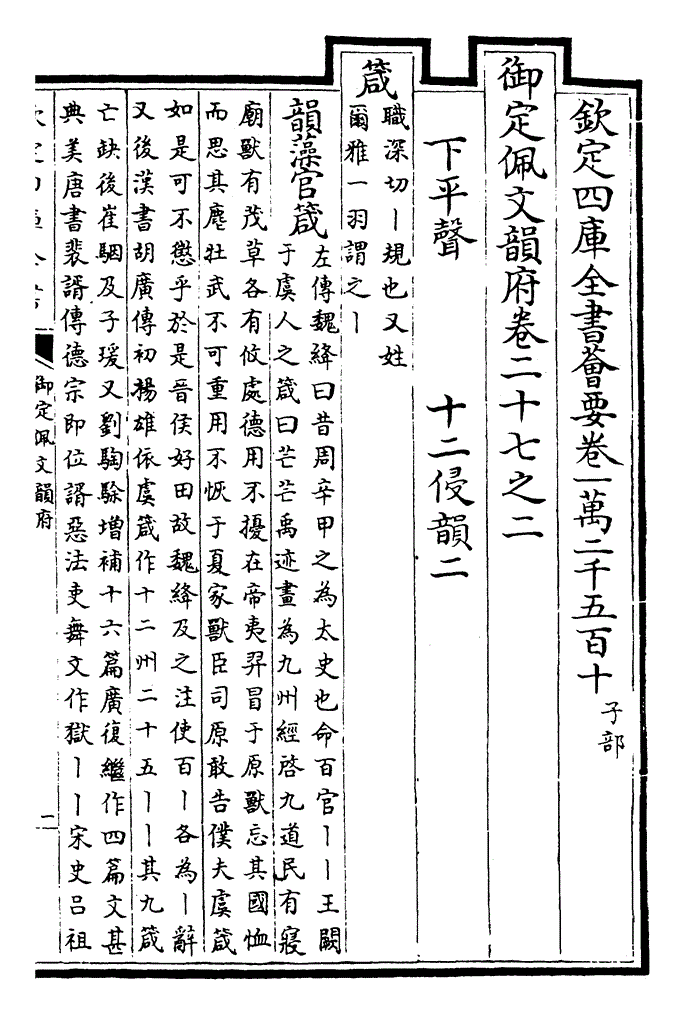 欽定四庫全書薈要卷一萬二千五百十 子部
御定佩文韻府卷二十七之二
下平聲 十二侵韻二
箴
職深切丨規也又姓
爾雅一羽謂之丨
韻藻官箴
左傳魏絳曰昔周辛甲之為太史也命百官丨丨王闕
于虞人之箴曰芒芒禹迹畫為九州經啓九道民有寢
廟獸有茂草各有攸處德用不擾在帝夷羿冒于原獸忘其國恤
而思其麀牡武不可重用不恢于夏家獸臣司原敢告僕夫虞箴
如是可不懲乎於是晉侯好田故魏絳及之注使百丨各為丨辭
又後漢書胡廣傳初揚雄依虞箴作十二州二十五丨丨其九箴
亡缺後崔駰及子瑗又劉騊駼增補十六篇廣復繼作四篇文甚
典美唐書裴諝傳德宗即位諝惡法吏舞文作獄丨丨宋史呂祖
御定佩文韻府